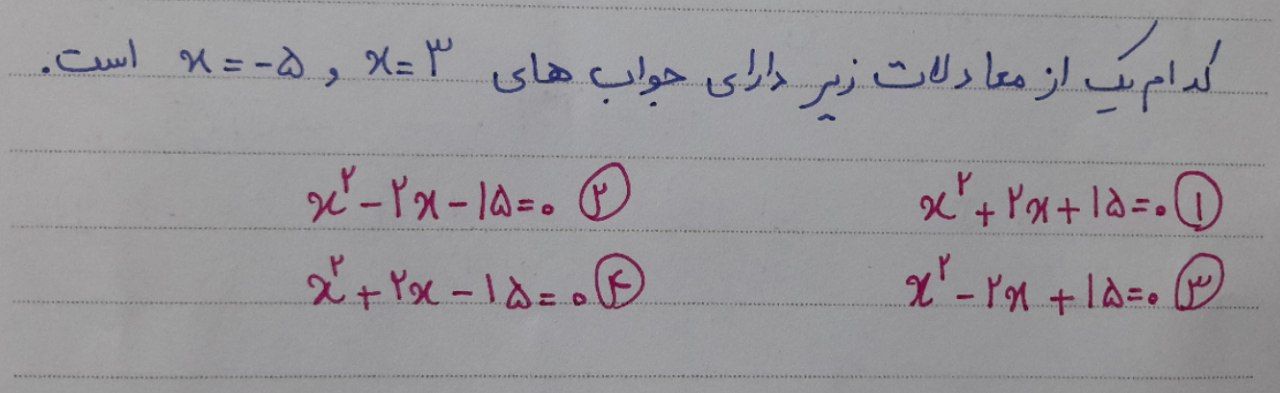 کدام یک از معادلات زیر دارای جواب های x=۳ و x=-۵ است.
① x²+۲x+۱۵=۰ ② x²-۲x-۱۵=۰
③ x²-۲x+۱۵=۰ ④ x²+۲x-۱۵=۰